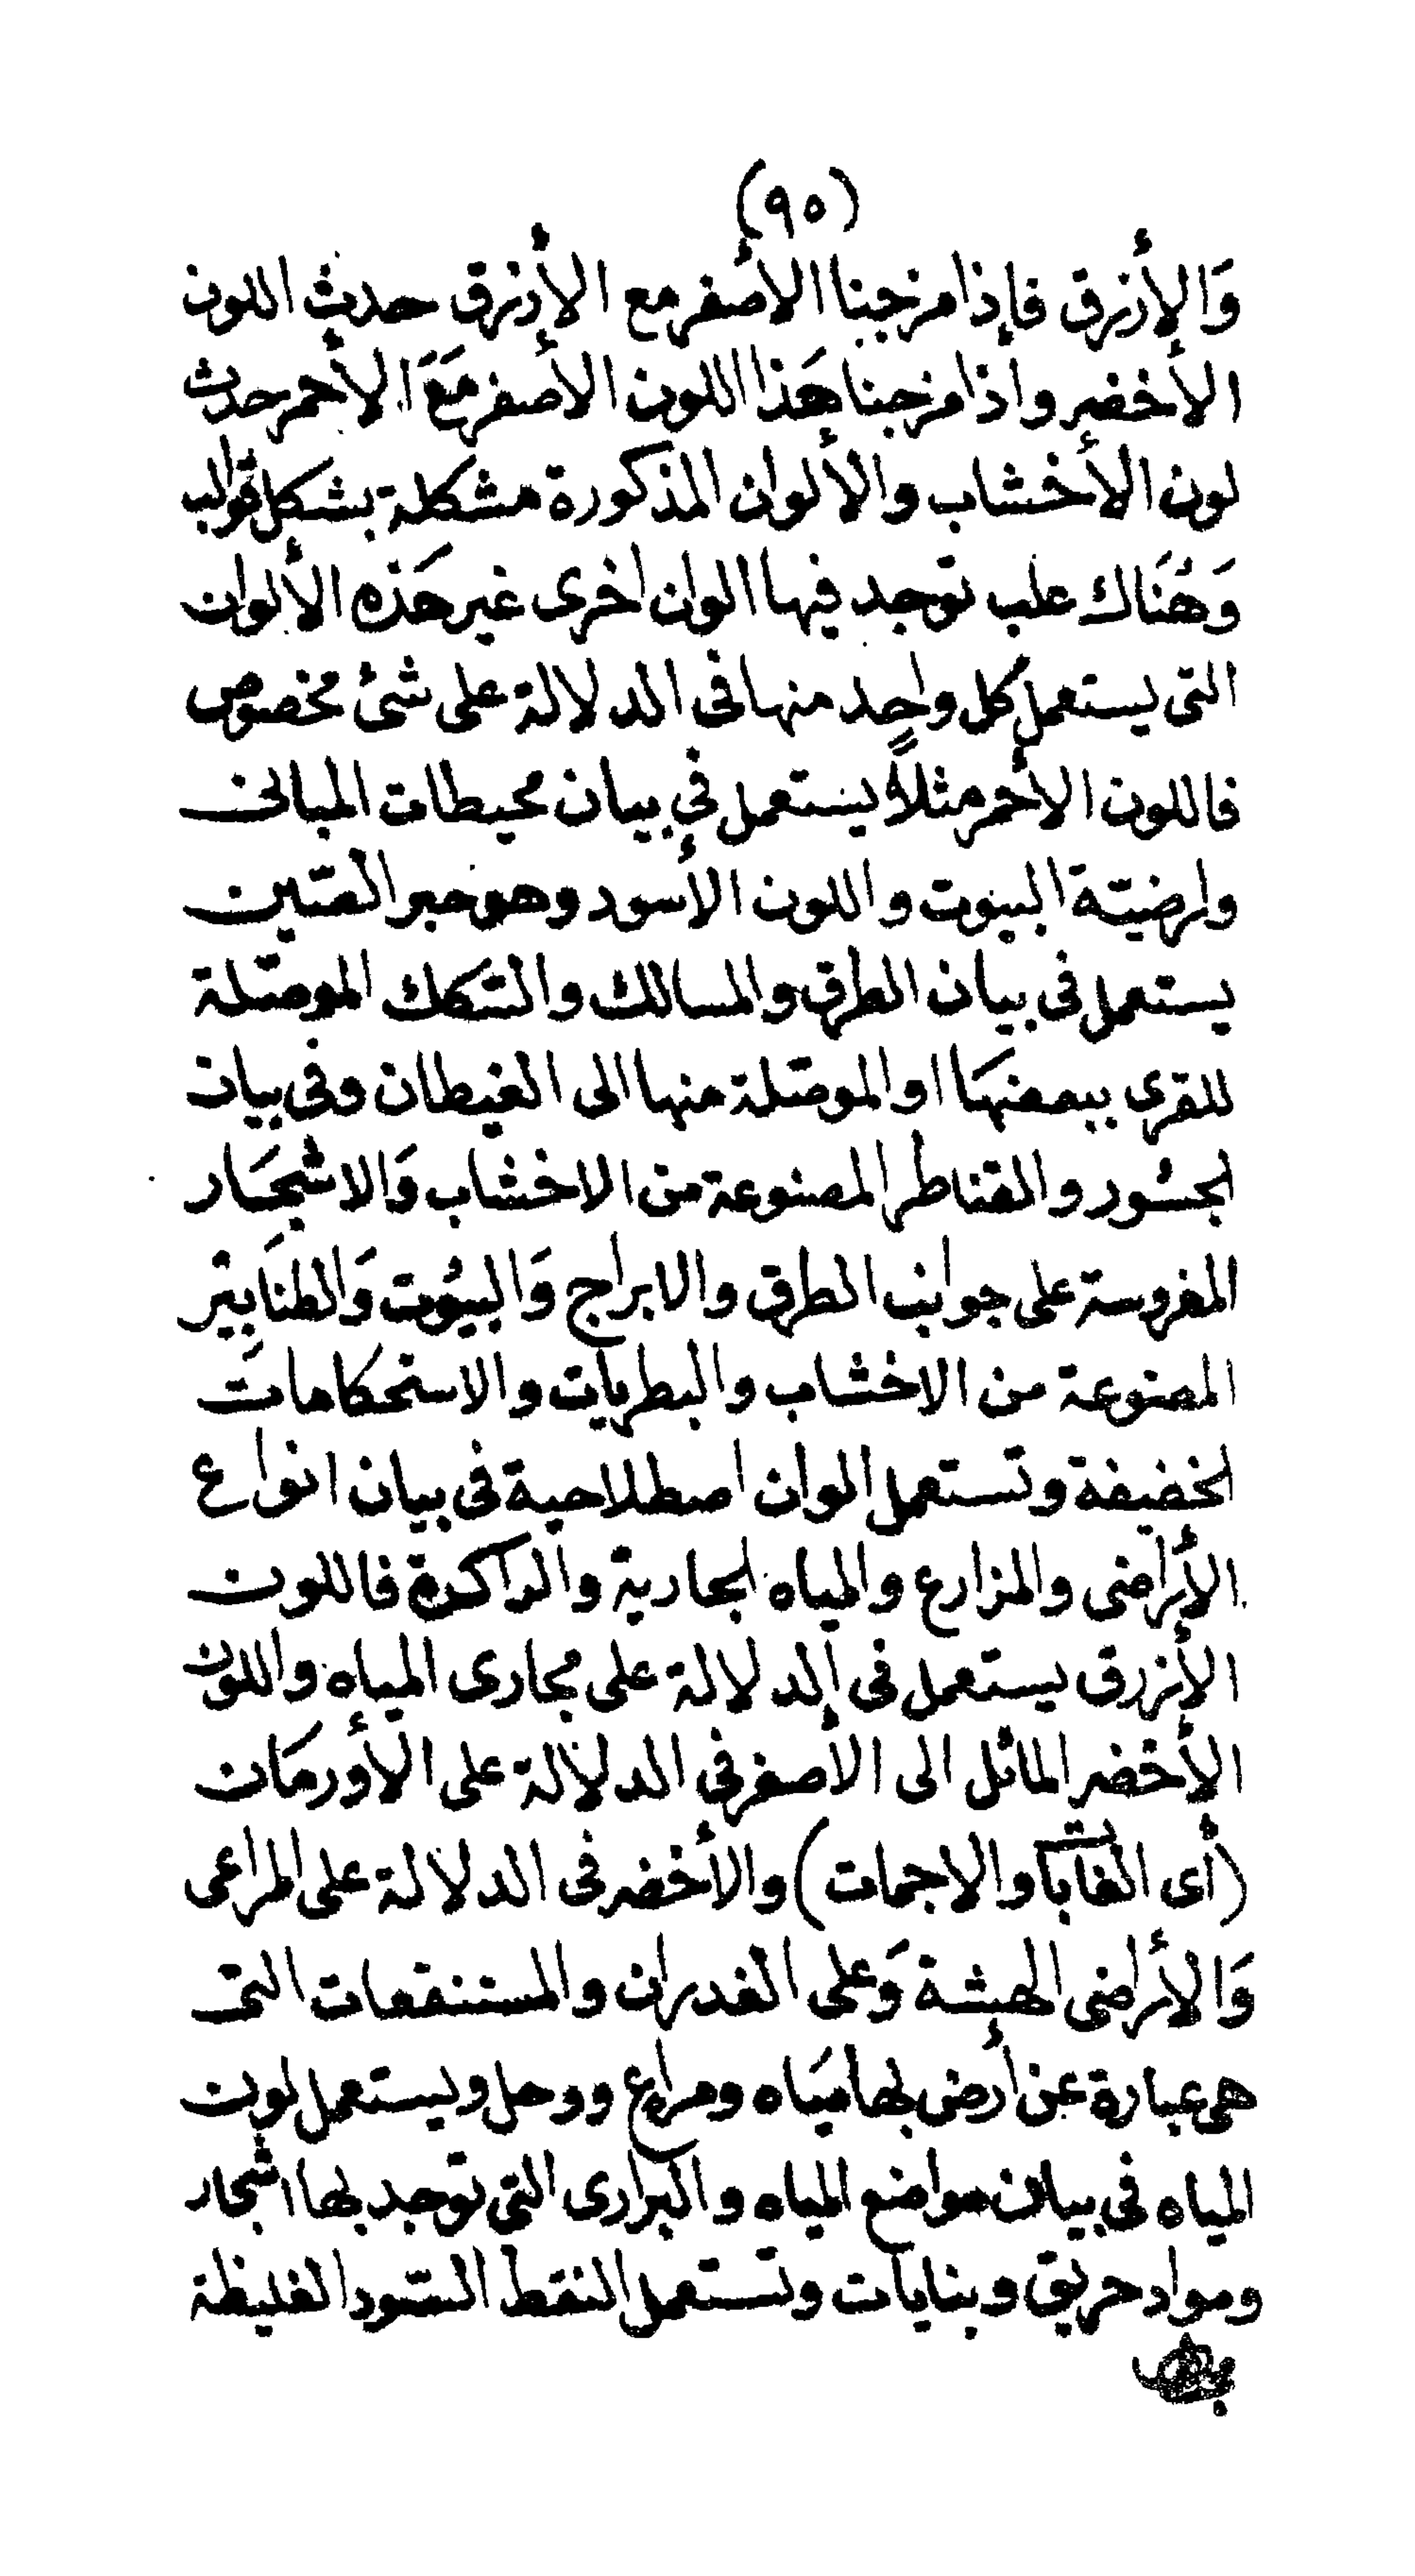 (٩٥)
وَالأزرق فإذا مزجنا الأصفر مع الأزرق حدث اللون
الأخضر واذا مزجنا هَذا اللون الأصفر مَعَ الأحمر حدث
لون الأخشاب والألوان المذكورة مشكلة بشكل قوالب
وَهُنَاك علب توجد فيها الوان اخرى غير هَذه الألوان
التى يستعمل كل واحدٍ منها فى الدلالة على شئ مخصوص
فاللون الأحمر مثلاً يستعمل في بيان محيطات المبانى
وارضيّة البيوت واللون الأسود وهو حبر الصّين
يستعمل فى بيان الطرق والمسالك والسّكك الموصّلة
للقرى ببعضهَا او الموصّلة منها الى الغيطان وفى بيان
الجسُور والقناطر المصنوعة من الاخشاب وَالاشجَار
المغروسة على جوانب الطرق والابراج وَالبيُوت وَالطنَابِير
المصنوعة من الاخشاب والبطريات والاستحكامات
الخفيفة وتستعمل الوان اصطلاحية فى بيان انواع
الأراضى والمزارع والمياه الجارية والراكدة فاللون
الأزرق يستعمل فى الدلالة على مجارى المياه واللون
الأخضر المائل الى الأصفر في الدلالة على الأورمَان
(أى الغابات والاجمات) والأخضر فى الدلالة على المراعى
وَالأراضى الهشة وَعلى الغدران والمستنقعات التى
هى عبارة عن أرض بها ميَاه ومراع ووحل ويستعمل لون
المياه فى بيان مواضع المياه والبرارى التي توجد بها اشجار
ومواد حريق وبنايات وتستعمل النقط السّود الغليظة